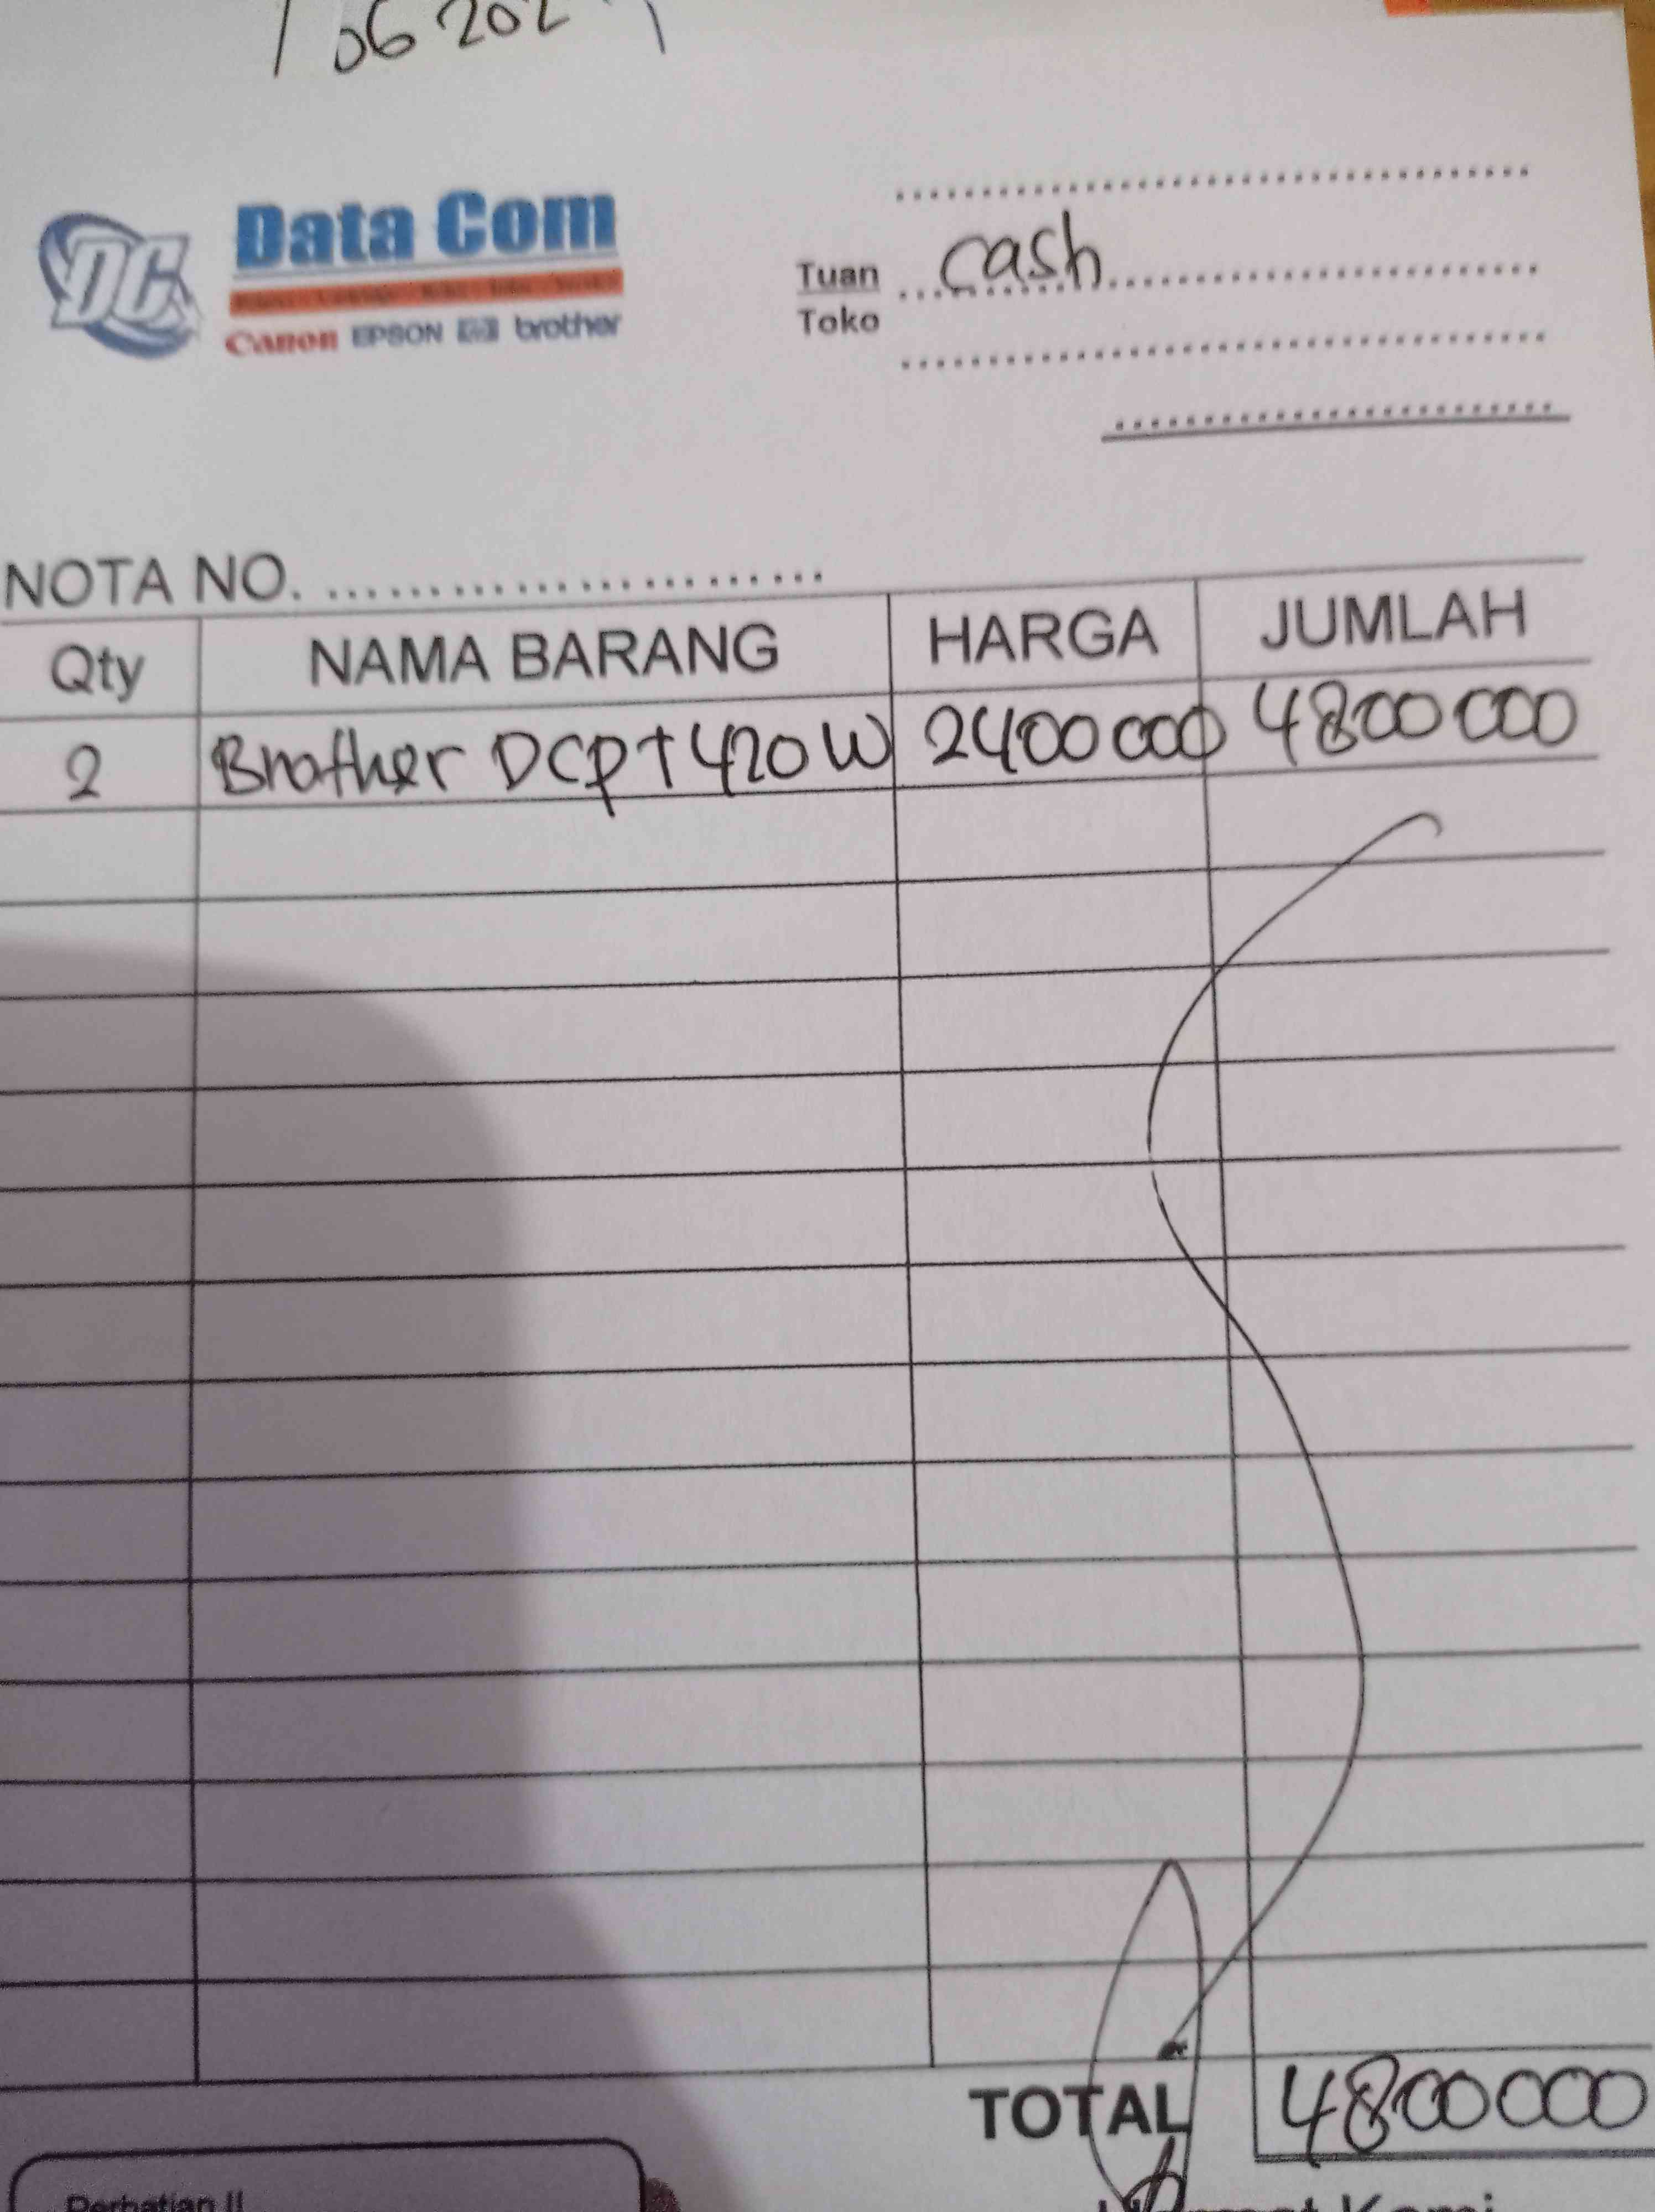 / 06 202
DC
Data Com
Canon EPSON hp brother
Tuan cash
Toko
NOTA NO. ........................
Qty NAMA BARANG HARGA JUMLAH
2 Brother DCP T420W 2400000 4800000
TOTAL 4800000
Perhatian !!
Hormat Kami